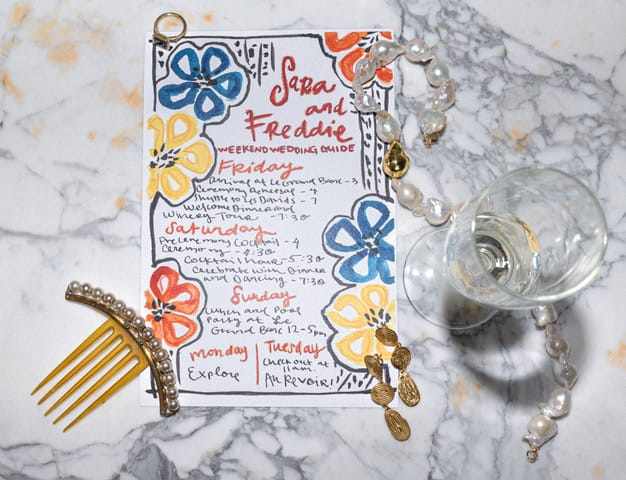 Sara
and
Freddie
WEEKEND WEDDING GUIDE
Friday
Arrival at Le Grand Banc - 3
Ceremony Rehearsal - 4
Shuttle to Les Davids - 7
Welcome Dinner and
Winery Tour - 7:30
Saturday
Pre Ceremony Cocktail - 4
Ceremony - 4:30
Cocktail Hour - 5:30
Celebrate with Dinner
and Dancing - 7:30
Sunday
Lunch and Pool
Party at Le
Grand Banc 12-5pm
monday | Tuesday
Explore | Check out at
11am.
Au Revoir!!